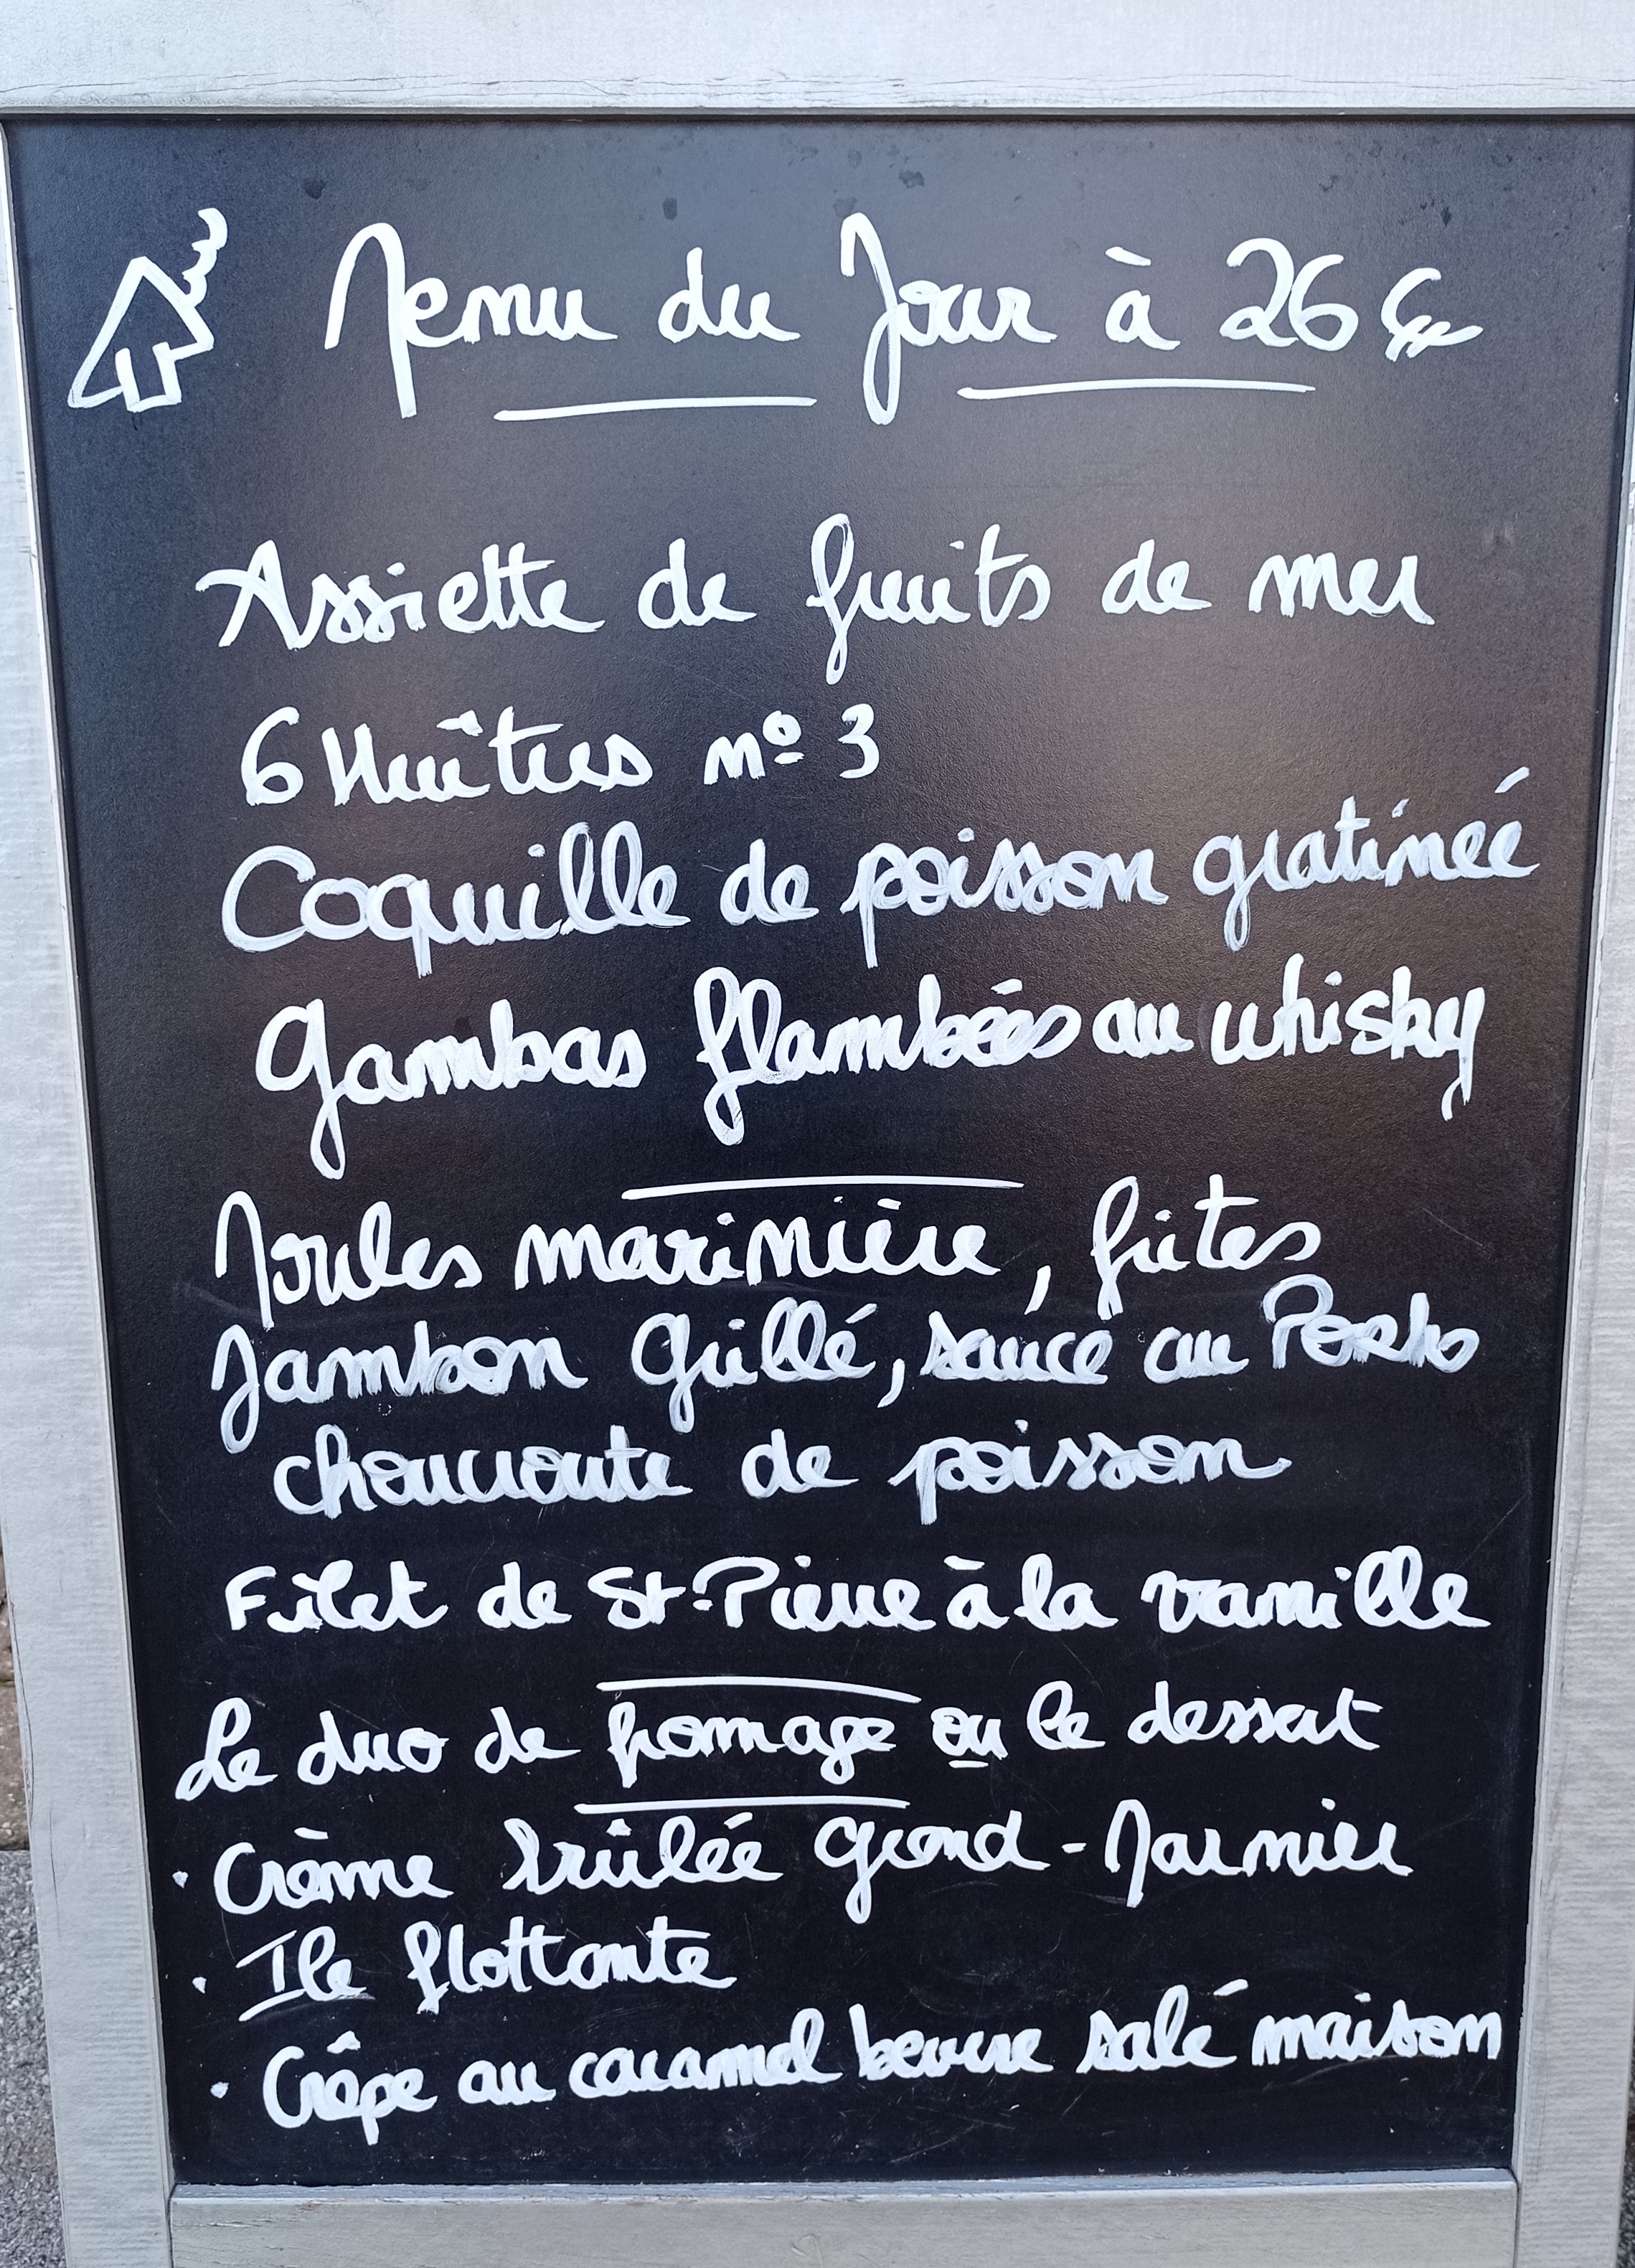 Menu du Jour à 26€
Assiette de fruits de mer
6 Huîtres nº 3
Coquille de poisson gratinée
Gambas flambées au whisky
Moules marinière, frites
Jambon Grillé, sauce au Porto
choucroute de poisson
Filet de St-Pierre à la vanille
Le duo de fromage ou le dessert
· Crème brûlée Grand-Marnier
· Ile flottante
· Crêpe au caramel beurre salé maison